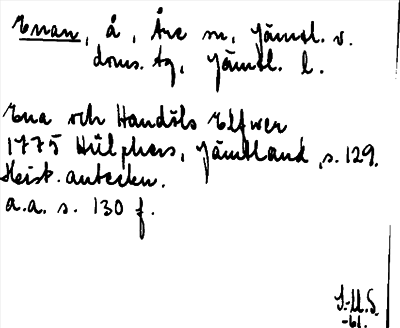 Enan, å, Åre sn, Jämtl. v.
doms. tg, Jämtl. l.
Ena och Handöls Elfwer
1775 Hülphers, Jämtland, s. 129.
Hist. anteckn.
a.a. s. 130 f.
S.-U.S.
-61.